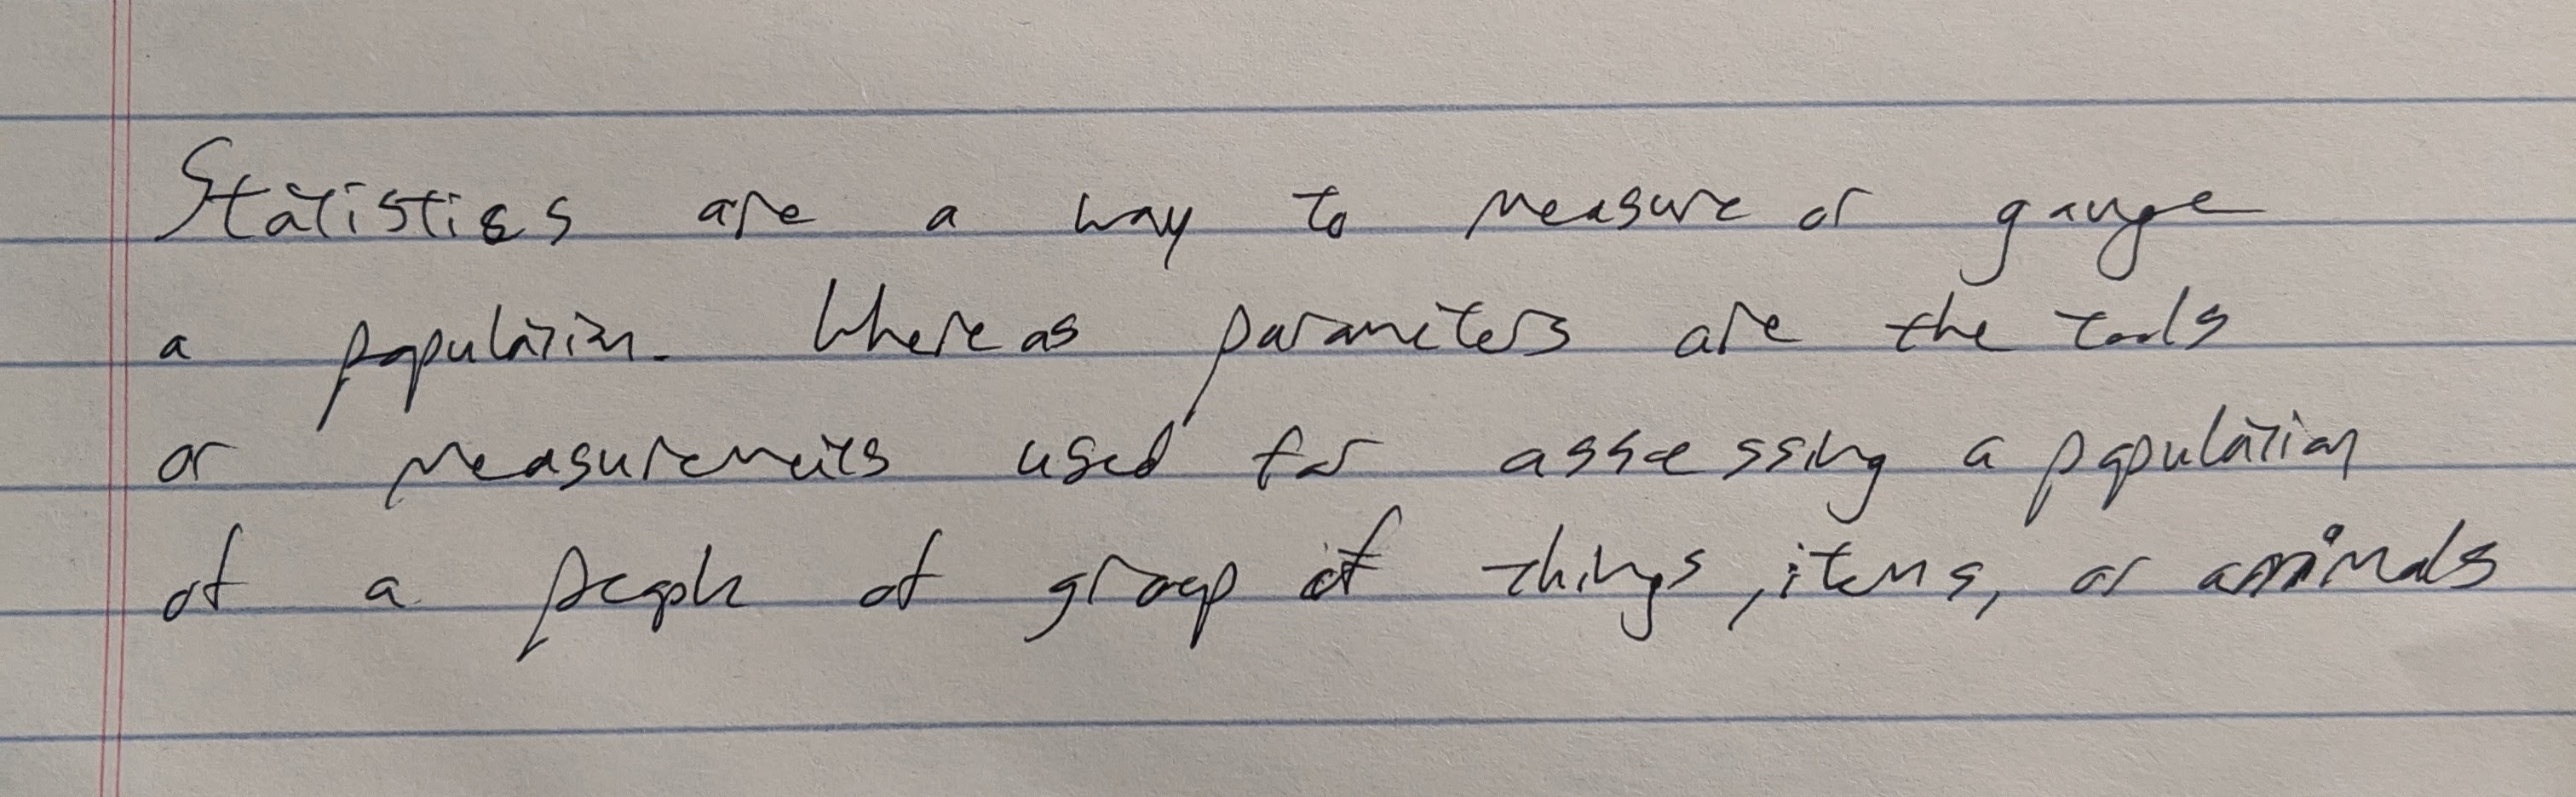 Statistics are a way to measure or gauge
a population. Whereas parameters are the tools
or measurements used for assessing a population
of a people of group of things, items, or animals